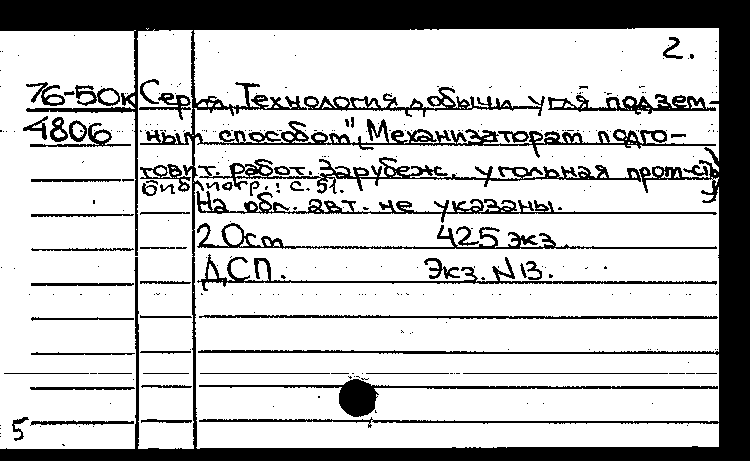 2.
76-50к Серия „Технология добычи угля подзем-
4806 ным способом". Механизаторам подго-
товит. работ. Зарубеж. угольная пром-сть
Библиогр.: с. 51.
На обл. авт. не указаны.
2 Ост 425 экз.
ДСП. Экз. N 13.
5